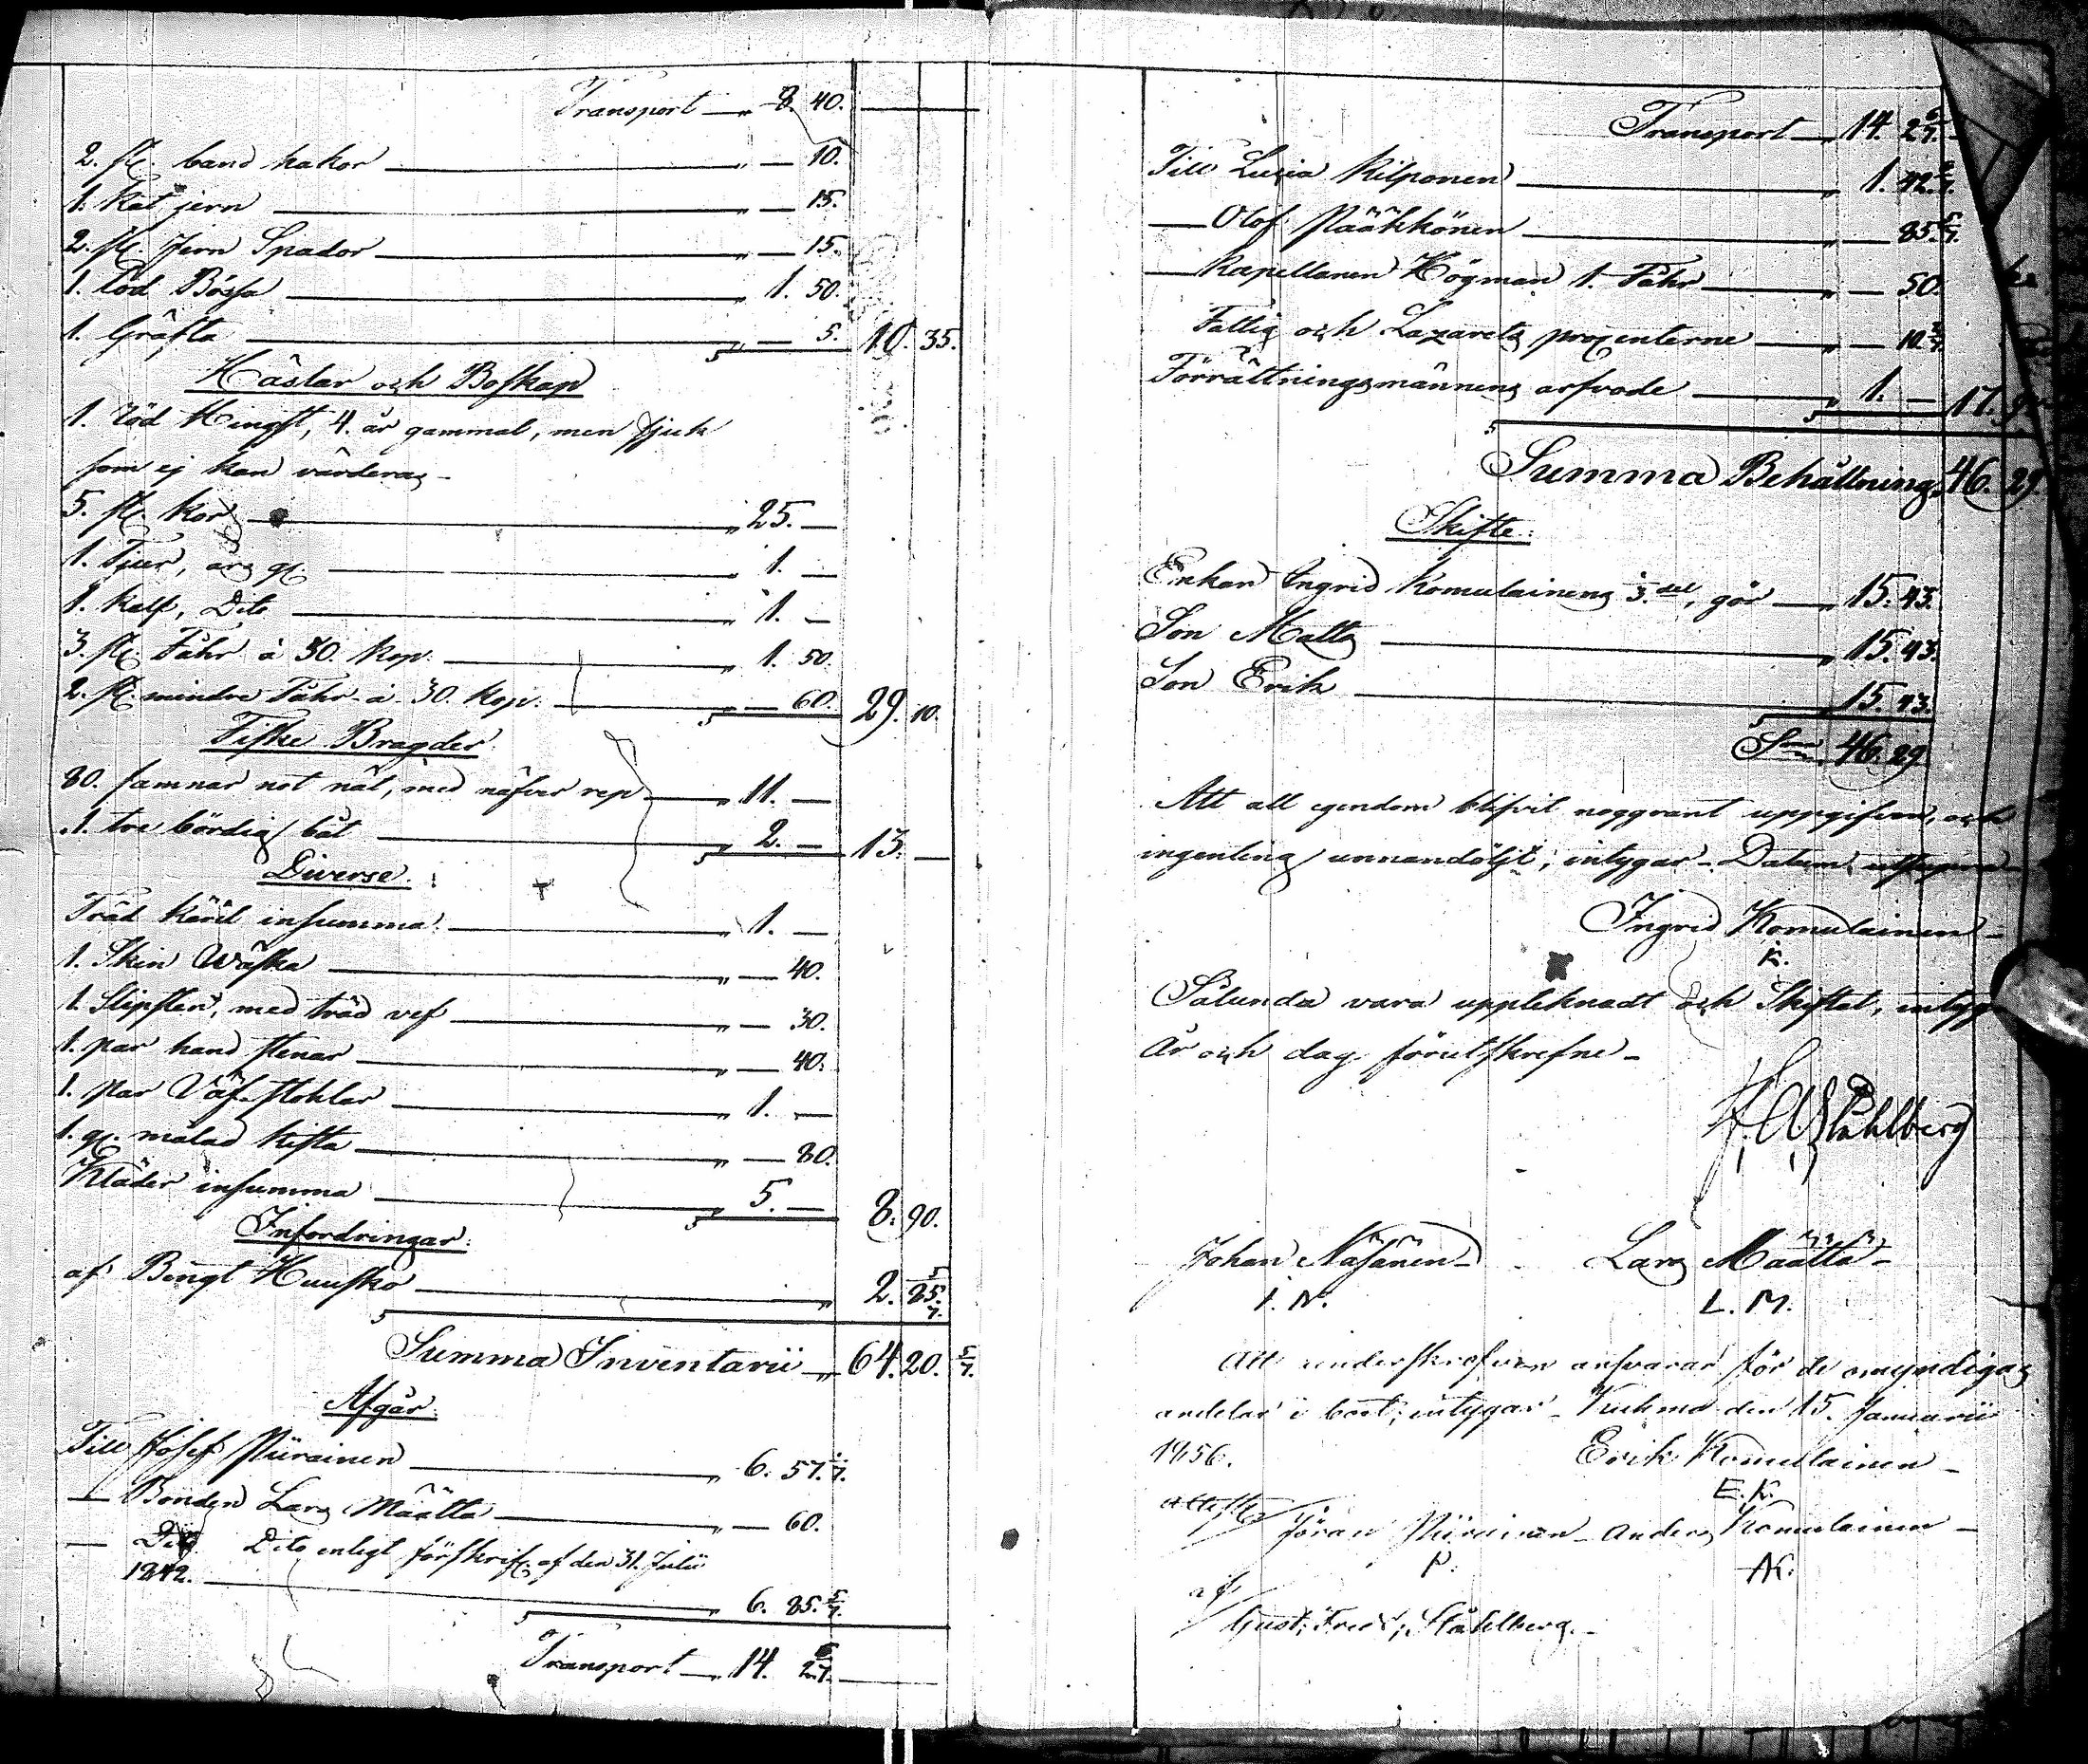 Transport — „ 8. 40.
2. st. band hakor — „ — 10.
1. kat jern — „ — 15.
2. st. Jern Spador — „ — 15.
1. lod Bössa — „ 1. 50.
1. Gräfta — „ — 5. 10. 35.
Hästar och Boskap
1. röd Hingst, 4. år gammal, men sjuk
som ej kan värderas —
5. st. kor — „ 25. —
1. Tjur, års gl. — „ 1. —
1. kalf, Dito — „ 1. —
3. st. Fåhr à 50. kop. — „ 1. 50.
2. st. mindre Fåhr à 30. kop. — „ — 60. 29. 10.
Fiske Bragder.
80. famnar not nät, med näfver rep — „ 11. —
1. tre bördig båt — „ 2. — 13. —
Diverse.
Träd käril insumma — „ 1. —
1. Skin Wäska — „ — 40.
1. Slipsten, med träd vef — „ — 30.
1. par hand stenar — „ — 40.
1. par Väf-stohlar — „ 1. —
1. gl. målad kista — „ — 80.
Kläder insumma — „ 5. — 8. 90.
Infordringar:
af Bengt Huusko — „ 2. 85. 5/7.
Summa Inventarii — „ 64. 20. 5/7.
Afgår.
Till Josef Piirainen — „ 6. 57. 1/7.
— Bonden Lars Määttä — „ — 60.
— Dito Dito enligt förskrif. af den 31. Julii
1842. — „ 6. 85. 5/7.
Transport — „ 14. 2 6/7.
Transport — „ 14. 2 6/7.
Till Lucia Kilponen — „ 1. 42. 6/7.
— Olof Pääkkönen — „ — 85. 5/7.
— Kapellanen Högman 1. Fåhr — „ — 50.
Fattig och Lazarets procenterne — „ — 10.
Förrättningsmännens arfvode — „ 1. — 17.
Summa Behållning 46. 29.
Skifte:
Enkan Ingrid Komulainens 3.del, gör — „ 15. 43.
Son Matts — „ 15. 43.
Son Erik — „ 15. 43.
S:ma 46. 29
Att all egendom blifvit noggrant uppgifven, och
ingenting unnandöljt, intygar — Datum utsupra —
Ingrid Komulainen —
K.
Sålunda vara uppteknadt och Skiftat, intyg
År och dag förutskrefne —
Ståhlberg
Johan Näsänen — Lars Määttä —
I. N. L. M.
Att underskrefven ansvarar för de omyndigas
andelar i boet, intygar — Kuhmo den 15. Januarii
1856. Erik Komulainen —
E. K.
Attest. Jöran Piirainen — Anders Komulainen —
P. AK.
af
Gust: Fred: Ståhlberg. —